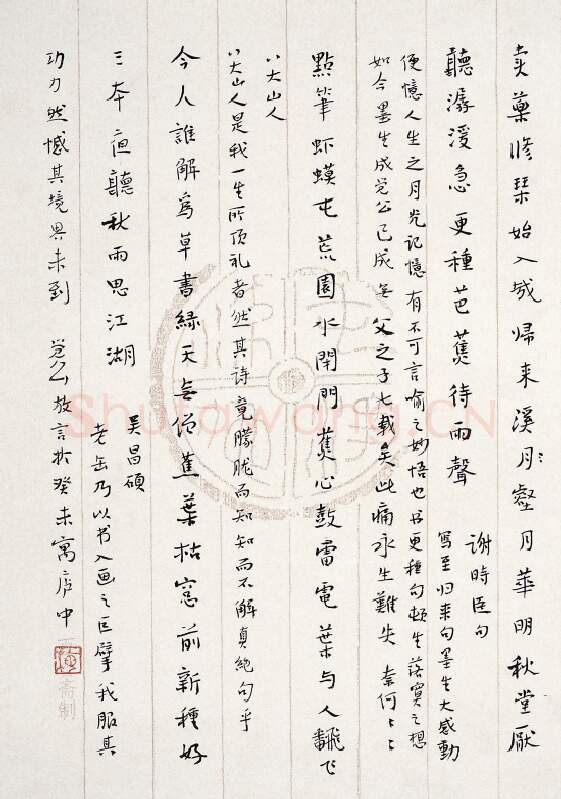 卖藥修琹始入城歸来溪月壑月華明秋堂厭
聽潺湲急更種芭蕉待雨聲
謝時臣句
寫至归来句墨生大感動
便憶人生之月光记憶有不可言喻之妙悟也吕更種句顿生落寞之想
如今墨生成觉公已成无父之子七载矣此痛永生難失 奈何〻〻
點筆虾蟆屯荒園水閉門蕉心鼓雷電葉与人飜飞
八大山人
八大山人是我一生所顶礼者然其诗竟朦胧而知知而不解真绝句乎
今人誰解為草書緑天无僧蕉葉枯窓前新種好
三本夜聽秋雨思江湖
吴昌碩
老缶乃以书入画之巨擘我服其
功力然憾其境界未到 觉公放言於癸未寓所中
斋制
Shufawang.CN